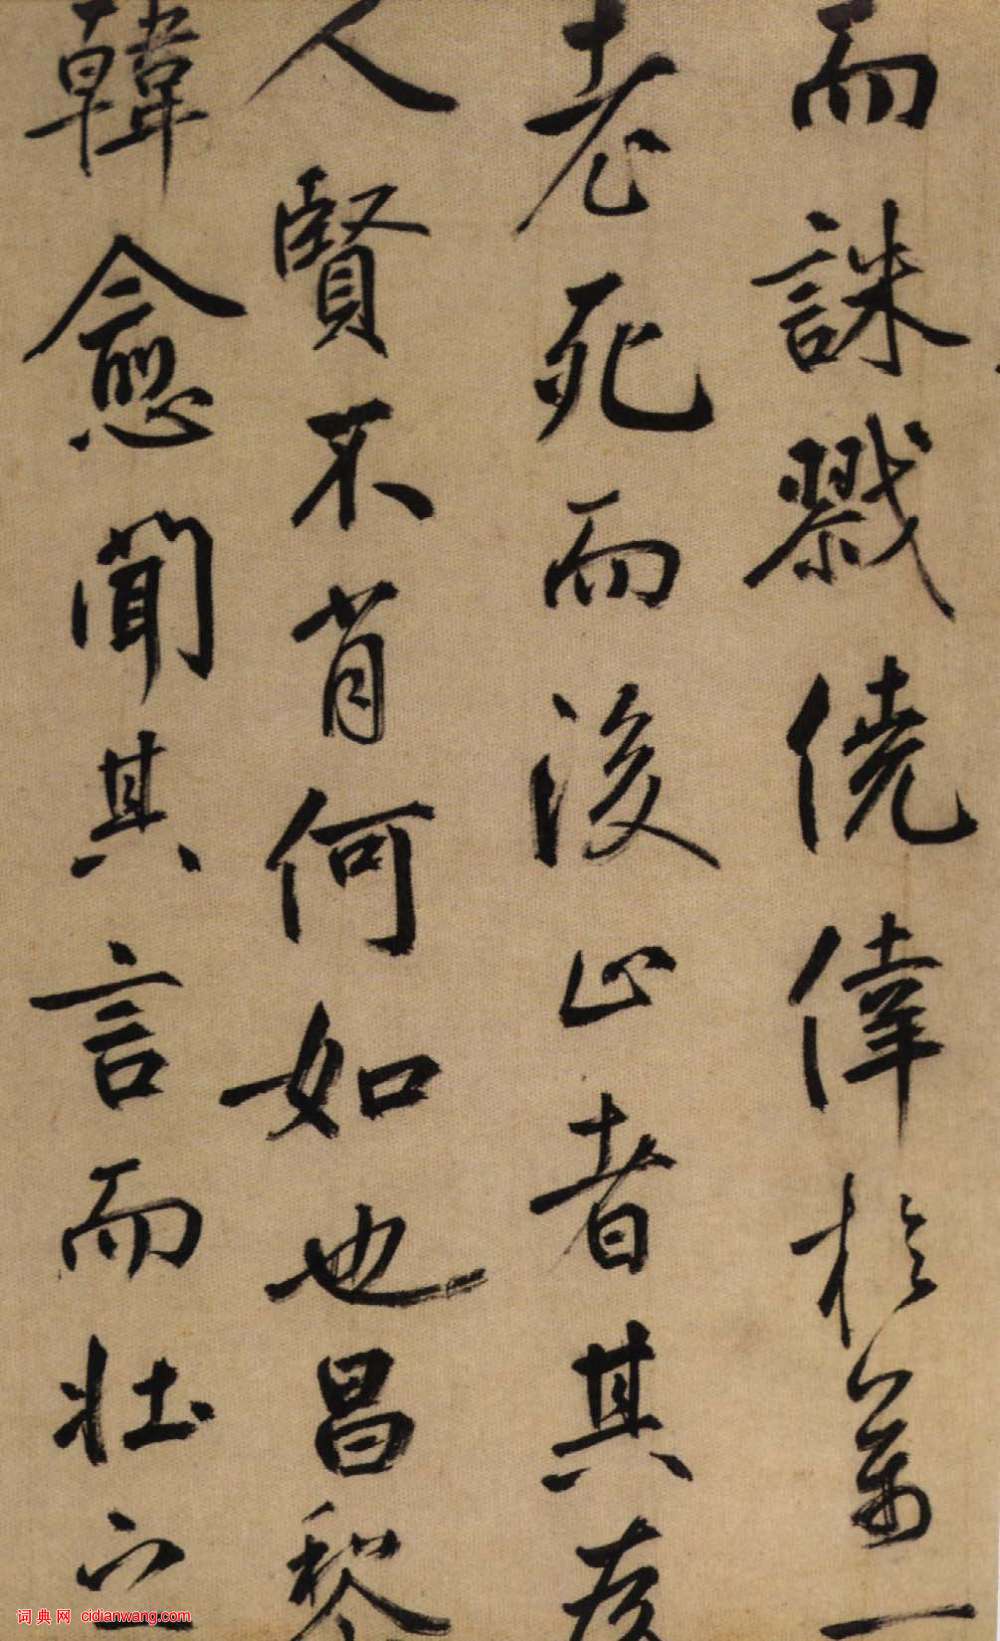 而誅戮僥倖於萬一
老死而後止者其
人賢不肖何如也昌黎
韓愈聞其言而壯之
词典网 cidianwang.com